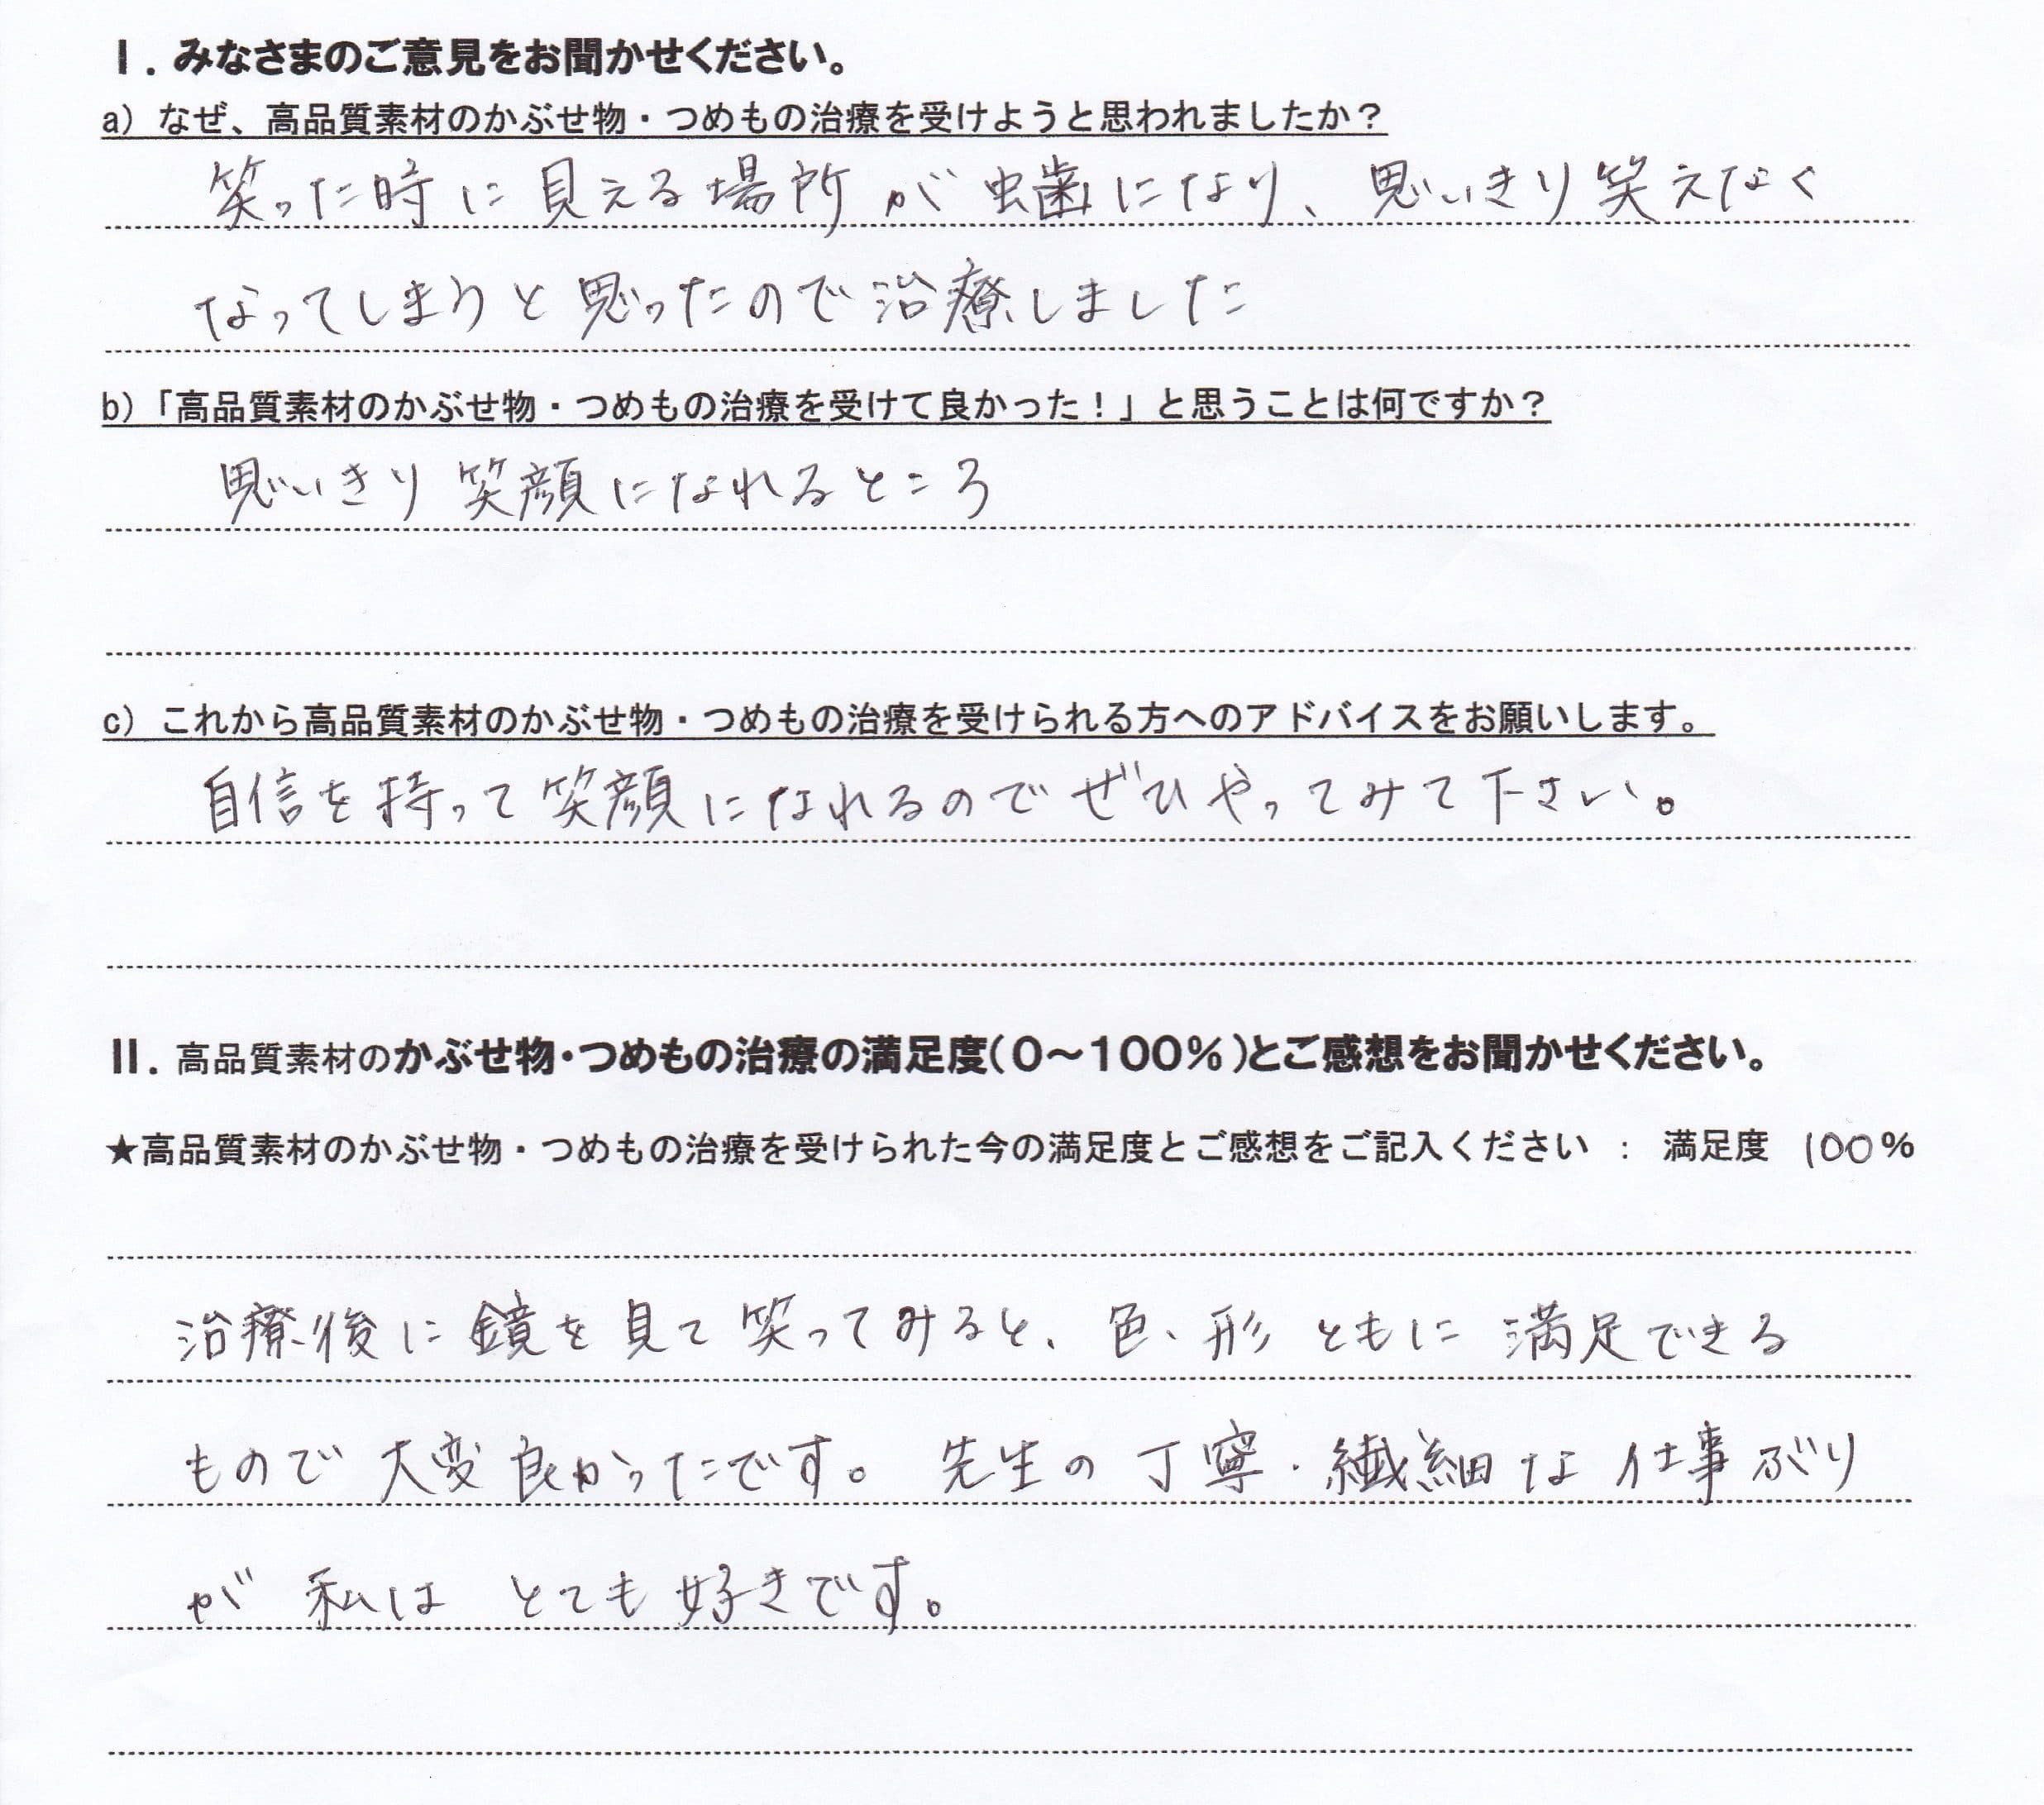 Ⅰ．みなさまのご意見をお聞かせください。
a）なぜ、高品質素材のかぶせ物・つめもの治療を受けようと思われましたか？
笑った時に見える場所が虫歯になり、思いきり笑えなく
なってしまうと思ったので治療しました
b）「高品質素材のかぶせ物・つめもの治療を受けて良かった！」と思うことは何ですか？
思いきり笑顔になれるところ
c）これから高品質素材のかぶせ物・つめもの治療を受けられる方へのアドバイスをお願いします。
自信を持って笑顔になれるのでぜひやってみて下さい。
Ⅱ．高品質素材のかぶせ物・つめもの治療の満足度（0～100％）とご感想をお聞かせください。
★高品質素材のかぶせ物・つめもの治療を受けられた今の満足度とご感想をご記入ください ： 満足度 100％
治療後に鏡を見て笑ってみると、色、形ともに満足できる
もので大変良かったです。先生の丁寧・繊細な仕事ぶり
が私はとても好きです。